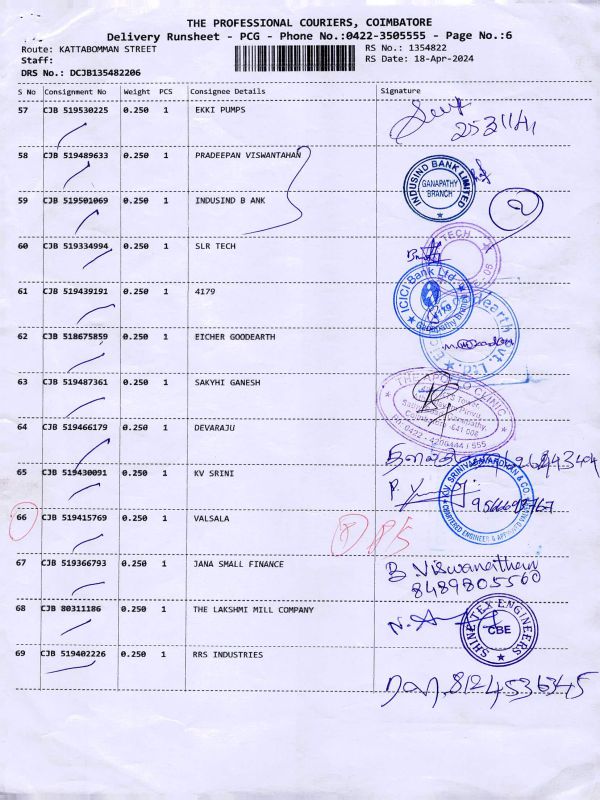 THE PROFESSIONAL COURIERS, COIMBATORE
Delivery Runsheet - PCG - Phone No.:0422-3505555 - Page No.:6
Route: KATTABOMMAN STREET
RS No.: 1354822
Staff:
RS Date: 18-Apr-2024
DRS No.: DCJB135482206
S No Consignment No Weight PCS Consignee Details Signature
57 CJB 519530225 0.250 1 EKKI PUMPS
58 CJB 519489633 0.250 1 PRADEEPAN VISWANTAHAN
INDUSIND BANK LIMITED
GANAPATHY
BRANCH
59 CJB 519501069 0.250 1 INDUSIND B ANK
2
60 CJB 519334994 0.250 1 SLR TECH
TECH
61 CJB 519439191 0.250 1 4179
ICICI Bank Ltd.
4179
Ganapathy Branch
62 CJB 518675859 0.250 1 EICHER GOODEARTH
earth Pvt. Ltd.
63 CJB 519487361 0.250 1 SAKYHI GANESH
CLINIC
Coimbatore -641 006
64 CJB 519466179 0.250 1 DEVARAJU
65 CJB 519430091 0.250 1 KV SRINI
K.V. SRINIVASWARDHAN & CO.
CHARTERED ENGINEER & APPROVED VALUER
66 CJB 519415769 0.250 1 VALSALA
67 CJB 519366793 0.250 1 JANA SMALL FINANCE
B. Viswanathan
8489805560
68 CJB 80311186 0.250 1 THE LAKSHMI MILL COMPANY
SHINE TEX ENGINEERS
CBE
69 CJB 519402226 0.250 1 RRS INDUSTRIES
8124536345